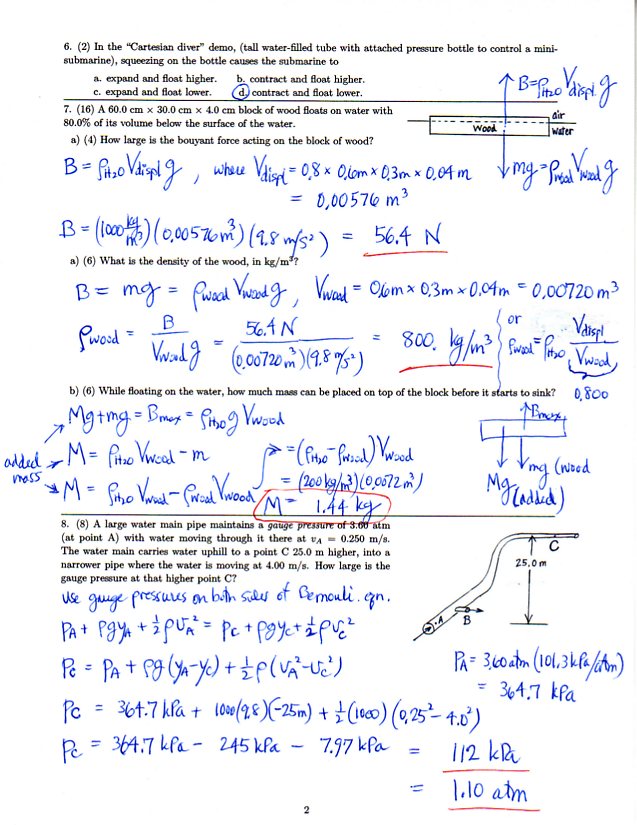 6. (2) In the "Cartesian diver" demo, (tall water-filled tube with attached pressure bottle to control a mini-
submarine), squeezing on the bottle causes the submarine to
a. expand and float higher. b. contract and float higher.
c. expand and float lower. d. contract and float lower.
B=ρH2O Vdispl. g
7. (16) A 60.0 cm × 30.0 cm × 4.0 cm block of wood floats on water with
80.0% of its volume below the surface of the water.
air
Wood
water
a) (4) How large is the bouyant force acting on the block of wood?
mg=ρwood Vwood g
B = ρH2O Vdispl g , where Vdispl = 0.8 × 0.6m × 0.3m × 0.04 m
= 0.00576 m³
B = (1000 kg/m³)(0.00576 m³)(9.8 m/s²) = 56.4 N
a) (6) What is the density of the wood, in kg/m³?
B = mg = ρwood Vwood g , Vwood = 0.6m × 0.3m × 0.04m = 0.00720 m³
ρwood = B / Vwood g = 56.4 N / (0.00720 m³)(9.8 m/s²) = 800. kg/m³
or
ρwood = ρH2O Vdispl / Vwood
0.800
b) (6) While floating on the water, how much mass can be placed on top of the block before it starts to sink?
Mg+mg = Bmax = ρH2O g Vwood
added mass
M = ρH2O Vwood - m
M = ρH2O Vwood - ρwood Vwood
= (ρH2O - ρwood) Vwood
= (200 kg/m³)(0.0072 m³)
M = 1.44 kg
Bmax
mg (wood
Mg (added)
8. (8) A large water main pipe maintains a gauge pressure of 3.60 atm
(at point A) with water moving through it there at vA = 0.250 m/s.
The water main carries water uphill to a point C 25.0 m higher, into a
narrower pipe where the water is moving at 4.00 m/s. How large is the
gauge pressure at that higher point C?
C
25.0 m
A
B
Use gauge pressures on both sides of Bernoulli eqn.
PA + ρgyA + ½ρvA² = Pc + ρgyc + ½ρvc²
Pc = PA + ρg(yA-yc) + ½ρ(vA²-vc²)
PA = 3.60 atm (101.3 kPa/atm)
= 364.7 kPa
Pc = 364.7 kPa + 1000(9.8)(-25m) + ½(1000)(0.25² - 4.0²)
Pc = 364.7 kPa - 245 kPa - 7.97 kPa = 112 kPa
= 1.10 atm
2